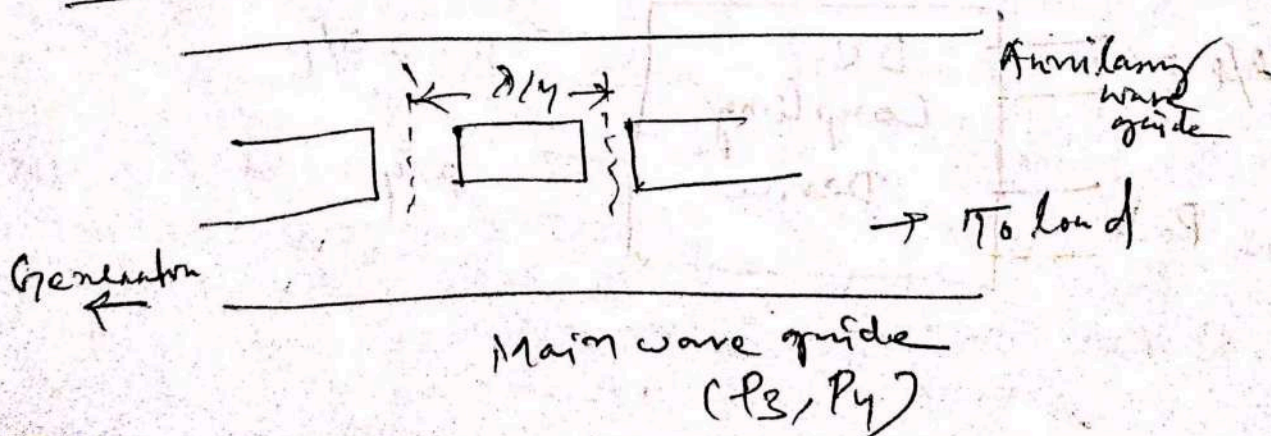 λ/4
Auxilary
wave
guide
→ To load
Generator
←
Main wave guide
(P3, P4)